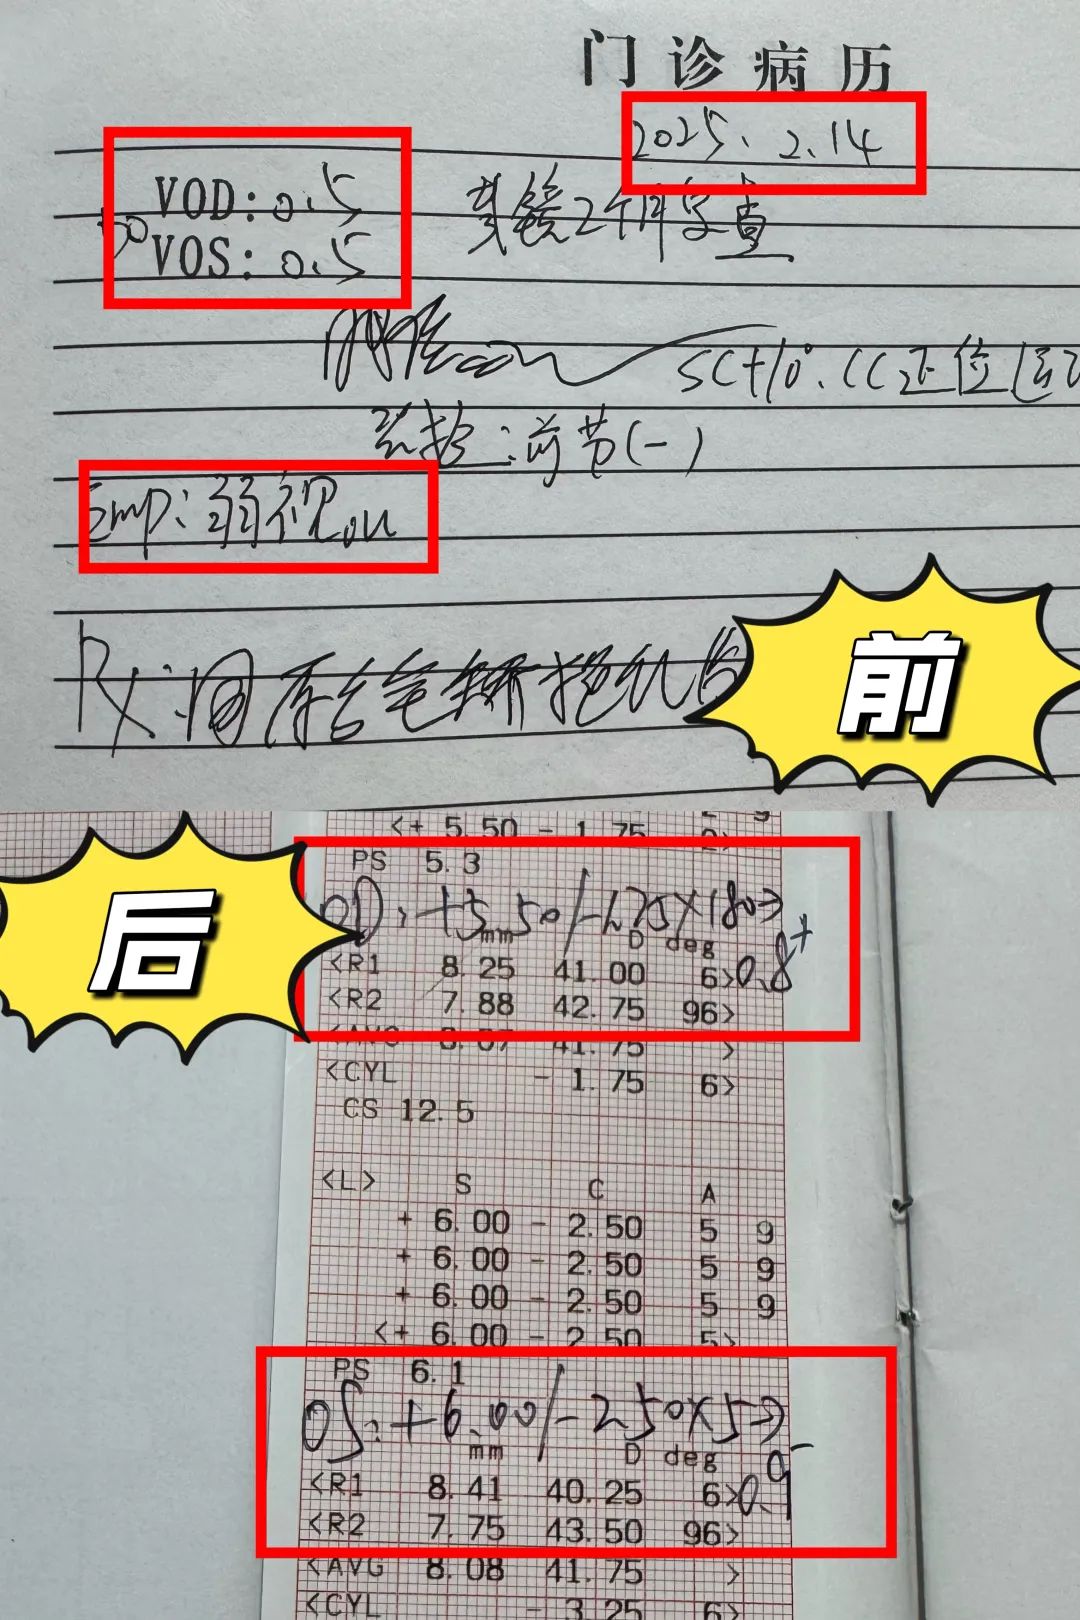 门诊病历
2025.2.14
VOD: 0.5
戴镜2个月复查
VOS: 0.5
SC+10°. CC正位
前节(-)
Imp: 弱视ou
Rx:
前
<+ 5.50 - 1.75
后
PS 5.3
OD: +5.50/-1.75×180→0.8+
mm D deg
<R1 8.25 41.00 6>
<R2 7.88 42.75 96>
<AVG 8.07 41.75 >
<CYL - 1.75 6>
CS 12.5
<L> S C A
+ 6.00 - 2.50 5 9
+ 6.00 - 2.50 5 9
+ 6.00 - 2.50 5 9
<+ 6.00 - 2.50 5>
PS 6.1
OS: +6.00/-2.50×5→0.9-
mm D deg
<R1 8.41 40.25 6>
<R2 7.75 43.50 96>
<AVG 8.08 41.75 >
<CYL - 3.25 6>